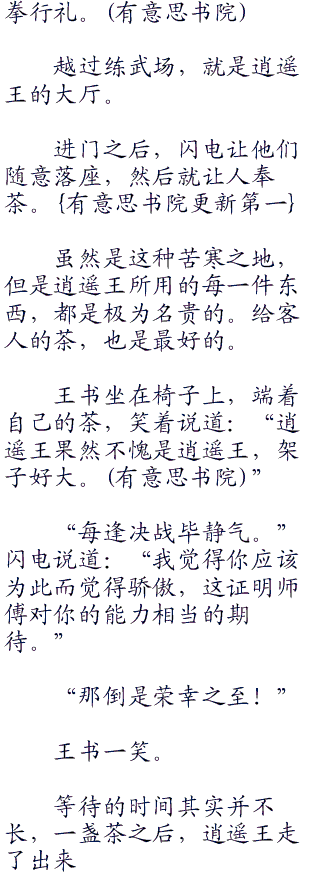 拳行礼。(有意思书院)
越过练武场，就是逍遥
王的大厅。
进门之后，闪电让他们
随意落座，然后就让人奉
茶。{有意思书院更新第一}
虽然是这种苦寒之地，
但是逍遥王所用的每一件东
西，都是极为名贵的。给客
人的茶，也是最好的。
王书坐在椅子上，端着
自己的茶，笑着说道：“逍
遥王果然不愧是逍遥王，架
子好大。(有意思书院)”
“每逢决战毕静气。”
闪电说道：“我觉得你应该
为此而觉得骄傲，这证明师
傅对你的能力相当的期
待。”
“那倒是荣幸之至！”
王书一笑。
等待的时间其实并不
长，一盏茶之后，逍遥王走
了出来